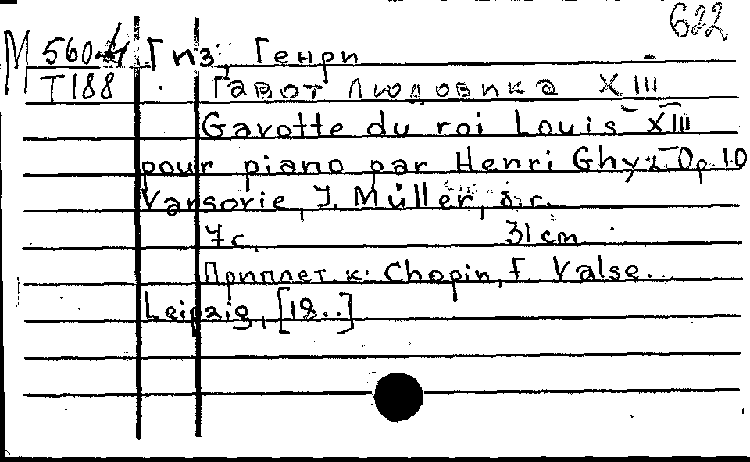 622
М 560-4 Гиз, Генри
Т188 Гавот Людовика XIII
Gavotte du roi Louis XIII
pour piano par Henri Ghys Op. 10
Varsovie, J. Müller, s. r.
7 с. 31 cm
Приплет к: Chopin, F. Valse..
Leipzig, [18..]